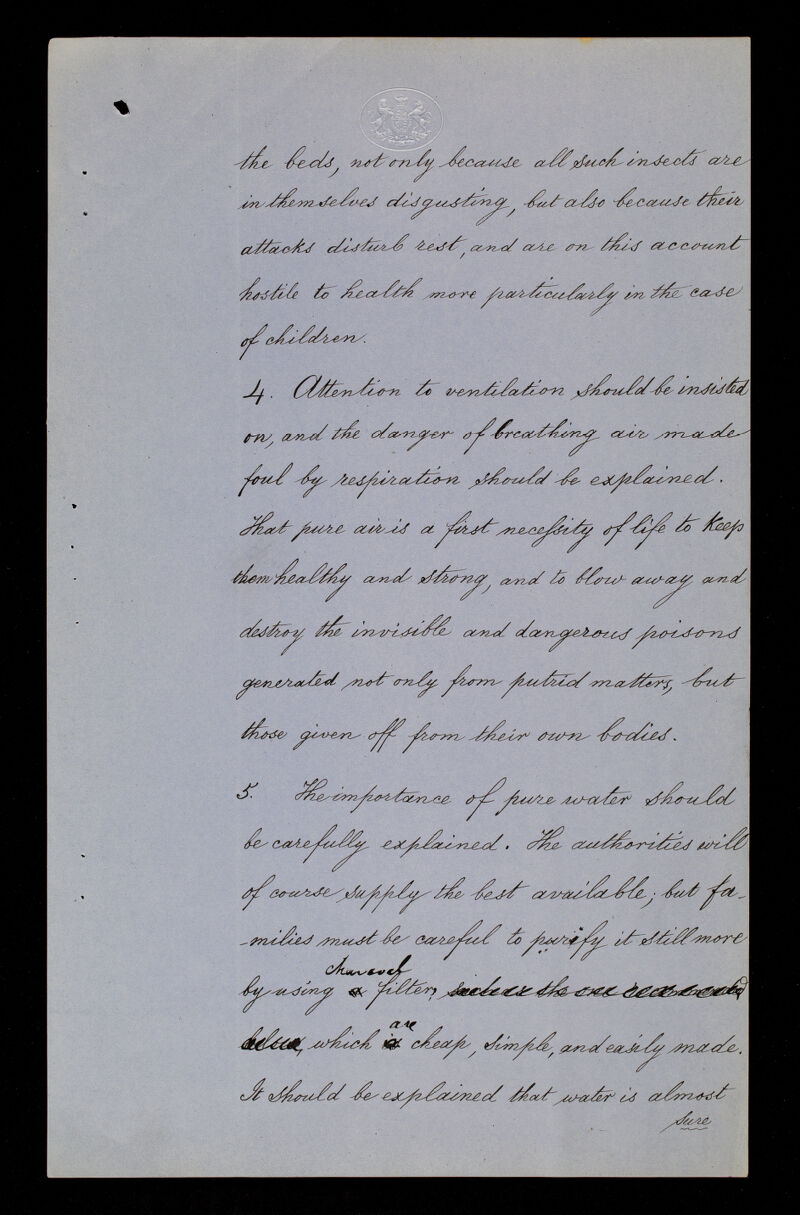 the beds, not only because all such insects are
in themselves disgusting, but also because their
attacks disturb rest, and are on this account
hostile to health more particularly in the case
of children.
4. Attention to ventilation should be insisted
on, and the danger of breathing air made
foul by respiration should be explained.
That pure air is a first necessity of life to keep
them healthy and strong, and to blow away and
destroy the invisible and dangerous poisons
generated not only from putrid matters, but
those given off from their own bodies.
5. The importance of pure water should
be carefully explained. The authorities will
of course supply the best available; but fa-
-milies must be careful to purify it still more
charcoal
by using a filters, such as the one recommended
are
below, which is cheap, simple, and easily made.
It should be explained that water is almost
sure